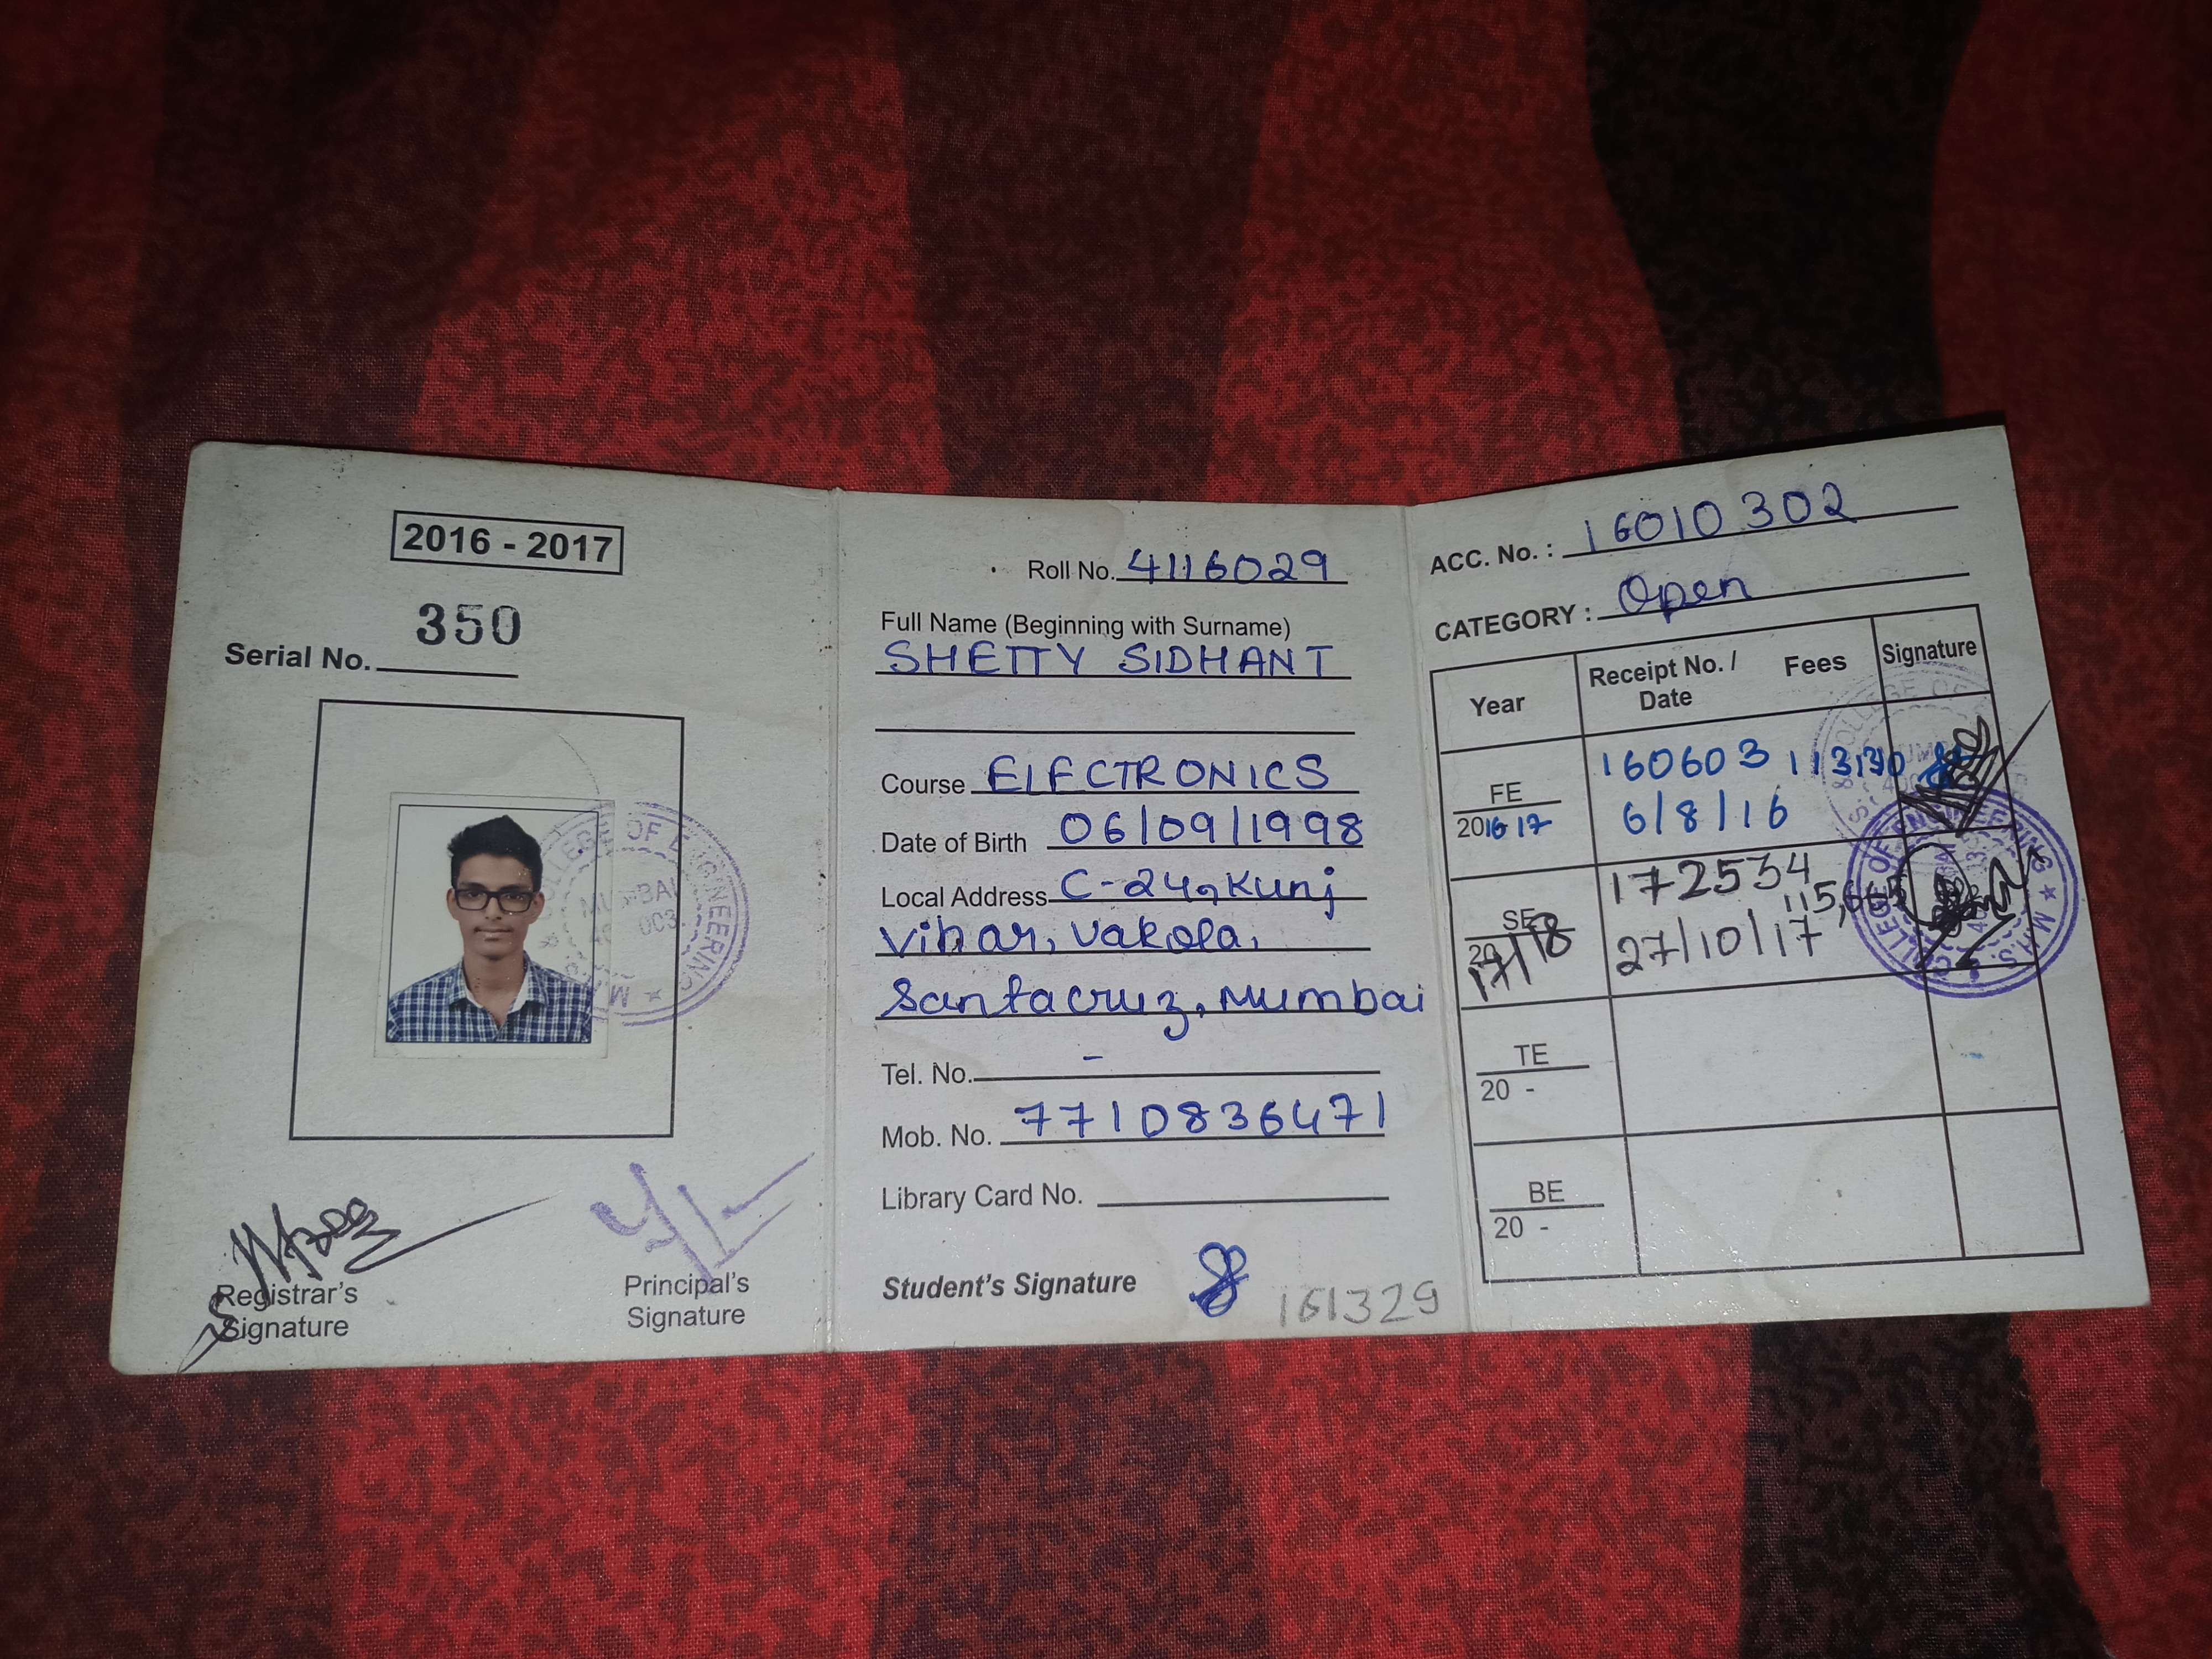 2016 - 2017
350
Serial No.
COLLEGE OF ENGINEERING
MUMBAI
Registrar's
Signature
Principal's
Signature
Roll No. 4116029
Full Name (Beginning with Surname)
SHETTY SIDHANT
Course ELECTRONICS
Date of Birth 06/09/1998
Local Address C-24, Kunj
Vihar, Vakola,
Santacruz, Mumbai
Tel. No. -
Mob. No. 7710836471
Library Card No.
Student's Signature
161329
ACC. No. : 16010302
CATEGORY : Open
Year Receipt No. / Date Fees Signature
FE 160603
2016 17 6/8/16
SE 172534
17/18 27/10/17
COLLEGE OF ENGINEERING
TE
20 -
BE
20 -